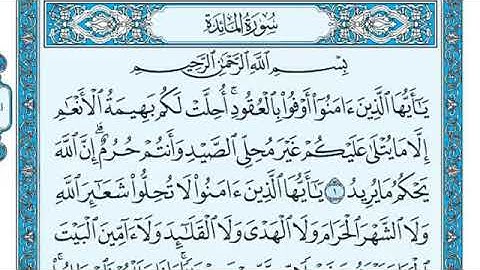 سُورَةُ المَائِدَةِ
بِسْمِ اللَّهِ الرَّحْمَٰنِ الرَّحِيمِ
يَٰٓأَيُّهَا الَّذِينَ ءَامَنُوٓا۟ أَوْفُوا۟ بِالْعُقُودِ ۚ أُحِلَّتْ لَكُم بَهِيمَةُ الْأَنْعَٰمِ
إِلَّا مَا يُتْلَىٰ عَلَيْكُمْ غَيْرَ مُحِلِّي الصَّيْدِ وَأَنتُمْ حُرُمٌ ۗ إِنَّ اللَّهَ
يَحْكُمُ مَا يُرِيدُ ١ يَٰٓأَيُّهَا الَّذِينَ ءَامَنُوا۟ لَا تُحِلُّوا۟ شَعَٰٓئِرَ اللَّهِ
وَلَا الشَّهْرَ الْحَرَامَ وَلَا الْهَدْىَ وَلَا الْقَلَٰٓئِدَ وَلَآ ءَآمِّينَ الْبَيْتَ